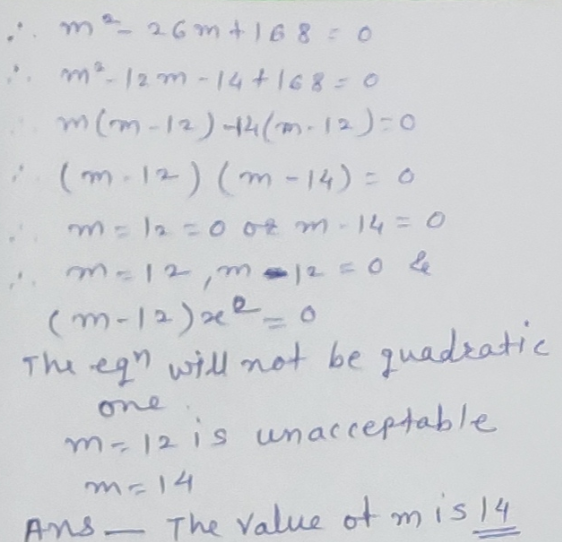 ∴ m² - 26m + 168 = 0
∴ m² - 12m - 14 + 168 = 0
∴ m(m - 12) - 14(m - 12) = 0
∴ (m - 12) (m - 14) = 0
∴ m = 12 = 0 or m - 14 = 0
∴ m = 12, m - 12 = 0 &
(m - 12)x² = 0
The eqⁿ will not be quadratic
one.
m = 12 is unacceptable
m = 14
Ans — The value of m is 14